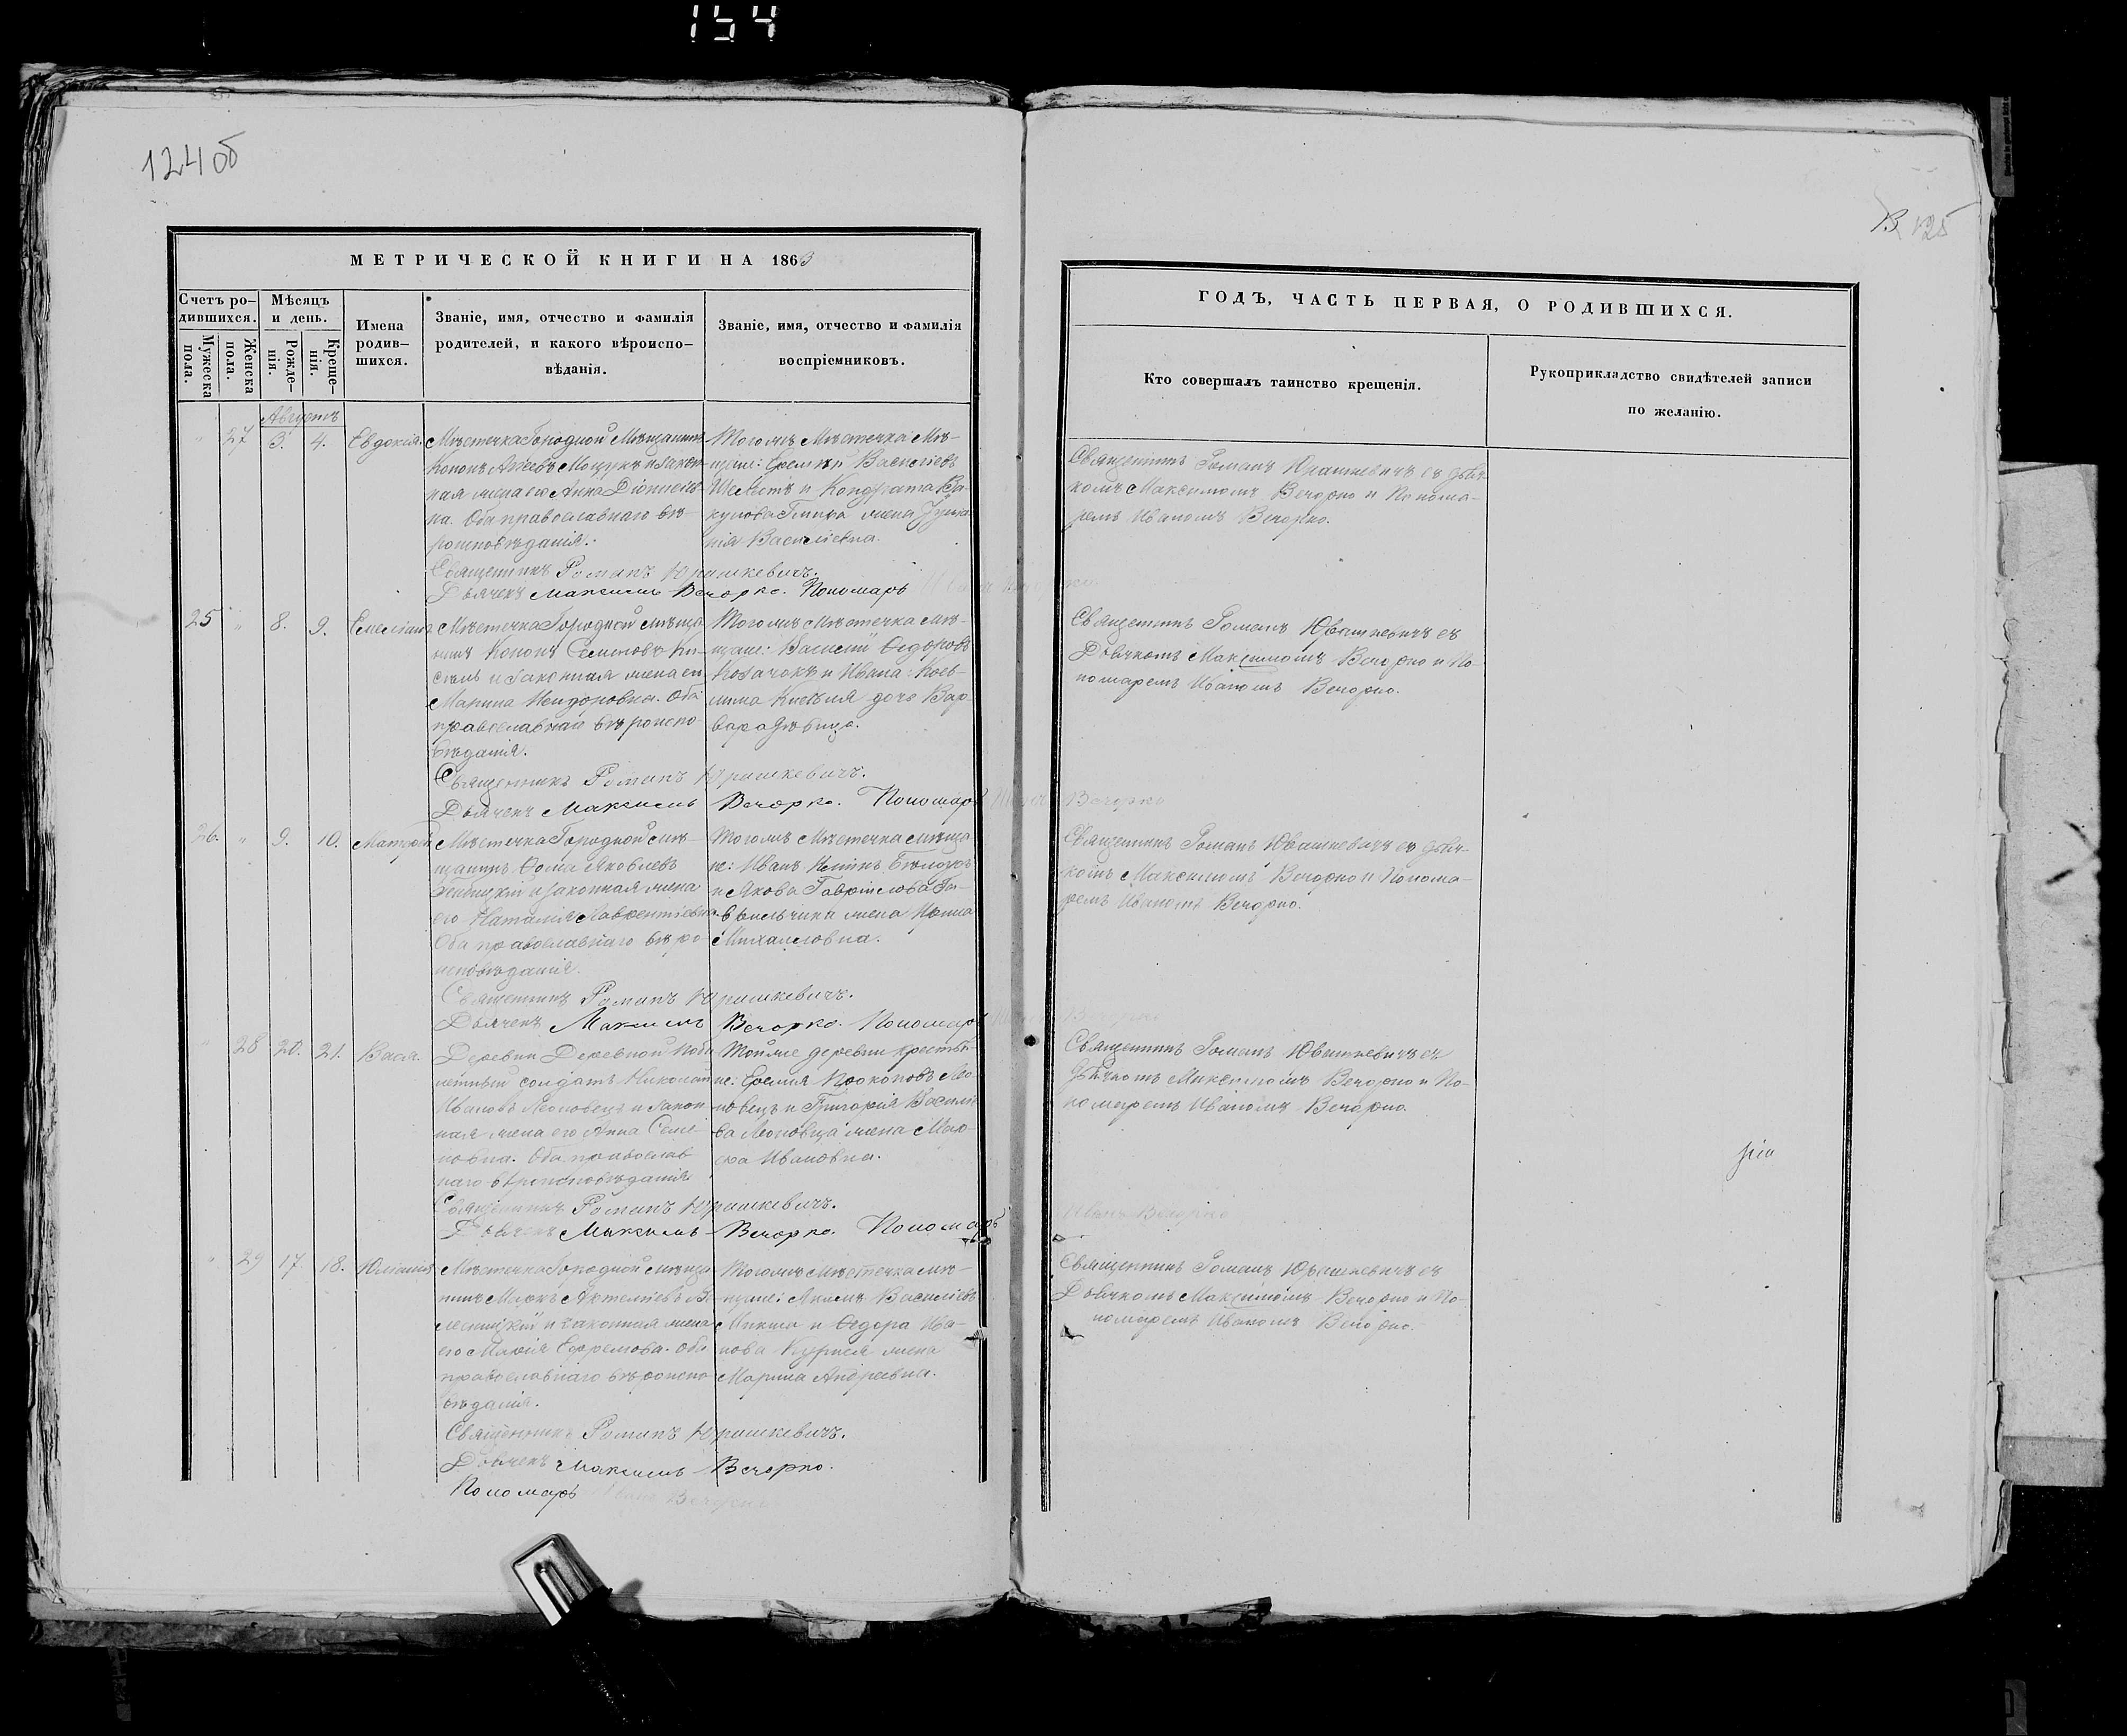 154
124 об
125
МЕТРИЧЕСКОЙ КНИГИ НА 1863
Счетъ ро-
дившихся.
Мужеска
пола.
Женска
пола.
Мѣсяцъ
и день.
Рожде-
нія.
Креще-
нія.
Имена
родив-
шихся.
Званіе, имя, отчество и фамилія
родителей, и какого вѣроиспо-
вѣданія.
Званіе, имя, отчество и фамилія
воспріемниковъ.
ГОДЪ, ЧАСТЬ ПЕРВАЯ, О РОДИВШИХСЯ.
Кто совершалъ таинство крещенія.
Рукоприкладство свидѣтелей записи
по желанію.
Августъ
27 3. 4. Евдокія.
Мѣстечка Городной Мѣщанинъ
Кононъ Мощукъ и закон-
ная жена его Анна
на. Оба православнаго вѣ-
роисповѣданія.
Священникъ Романъ Юрашкевичъ.
Дьячекъ Максимъ Вечорко. Пономарь
Тогожъ Мѣстечка Мѣ-
щане: Василіевъ
Шелестъ и Кондрата Ва-
кулова жена
нія Василіевна.
Священникъ Романъ Юрашкевичъ съ дьяч-
комъ Максимомъ Вечорко и Понома-
ремъ Иваномъ Вечорко.
25 8. 9.
Мѣстечка Городной мѣща-
нинъ Кононъ Ки-
сель и законная жена его
Марина Исидоровна. Оба
православнаго вѣроиспо-
вѣданія.
Священникъ Романъ Юрашкевичъ.
Дьячекъ Максимъ Вечорко. Пономарь Вечорко
Тогожъ мѣстечка мѣ-
щане: Василій Ѳедоровъ
Козачокъ и Ивана
Киселя дочь Вар-
вара дѣвица.
Священникъ Романъ Юрашкевичъ съ
Дьячкомъ Максимомъ Вечорко и По-
номаремъ Иваномъ Вечорко.
26. 9. 10.
Мѣстечка Городной мѣ-
щанинъ Ѳома Яковлевъ
и законная жена
его Наталія Лаврентіевна
Оба православнаго вѣро-
исповѣданія.
Священникъ Романъ Юрашкевичъ.
Дьячекъ Максимъ Вечорко. Пономарь
Тогожъ Мѣстечка мѣща-
не: Иванъ
и Якова Гавріилова Га-
врильчика жена
Михаиловна.
Священникъ Романъ Юрашкевичъ съ дьяч-
комъ Максимомъ Вечорко и Понома-
ремъ Иваномъ Вечорко.
28 20. 21.
Деревни Деревной
солдатъ Николай
Ивановъ Леоновецъ и закон-
ная жена его Анна Семе-
новна. Оба православ-
наго вѣроисповѣданія
Священникъ Романъ Юрашкевичъ.
Дьячекъ Максимъ Вечорко. Пономарь Иванъ Вечорко
Тойже деревни крестья-
не: Прокоповъ Ле-
новецъ и Григорія Василіе-
ва Леоновца жена
Ивановна.
Священникъ Романъ Юрашкевичъ съ
дьячкомъ Максимомъ Вечорко и По-
номаремъ Иваномъ Вечорко.
29 17. 18. Юліанія
Мѣстечка Городной мѣща-
нинъ Маркъ
и законная жена
его Марія Ефремова. Оба
православнаго вѣроиспо-
вѣданія.
Священникъ Романъ Юрашкевичъ.
Дьячекъ Максимъ Вечорко.
Пономарь Иванъ Вечорко
Тогожъ Мѣстечка мѣ-
щане: Василіевъ
и Ѳедора Ива-
нова жена
Марина Андреевна.
Священникъ Романъ Юрашкевичъ съ
Дьячкомъ Максимомъ Вечорко и По-
номаремъ Иваномъ Вечорко.